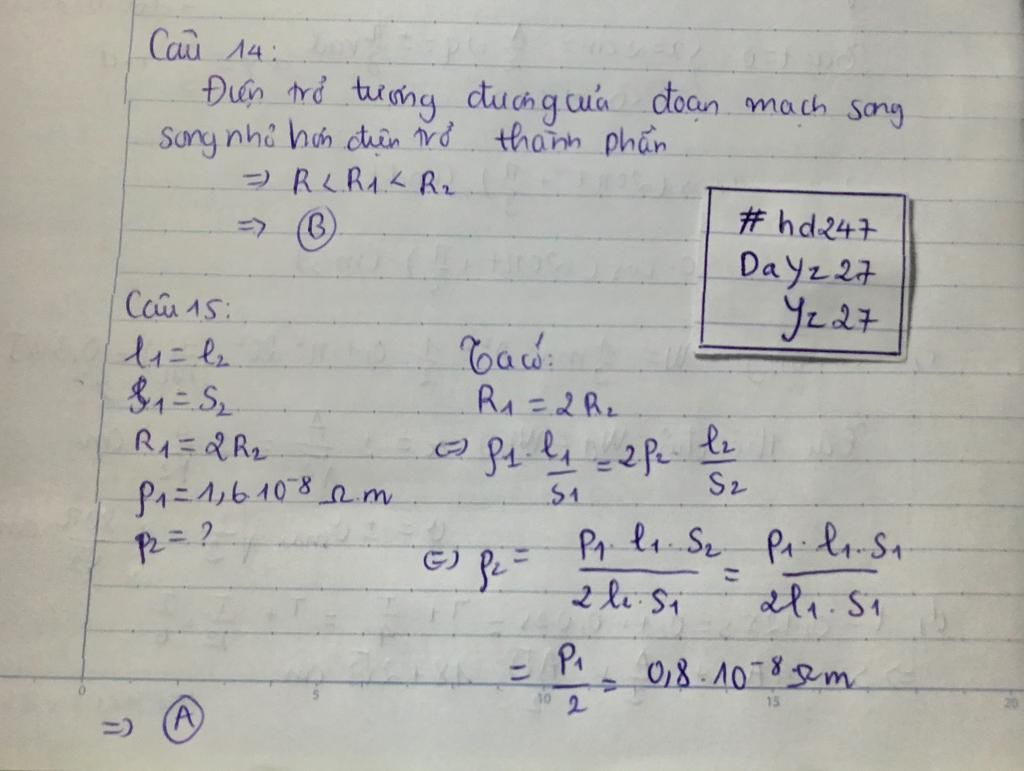 Câu 14:
Điện trở tương đương của đoạn mạch song
song nhỏ hơn điện trở thành phần
=> R < R1 < R2
=> B
# hd247
DaYz27
Yz27
Câu 15:
l1 = l2
S1 = S2
R1 = 2R2
ρ1 = 1,6.10⁻⁸ Ω.m
ρ2 = ?
Ta có:
R1 = 2R2
<=> ρ1 . l1/S1 = 2ρ2 . l2/S2
<=> ρ2 = ρ1 . l1 . S2 / 2l2 . S1 = ρ1 . l1 . S1 / 2l1 . S1
= ρ1/2 = 0,8.10⁻⁸ Ωm
0 5 10 15 20
=> A